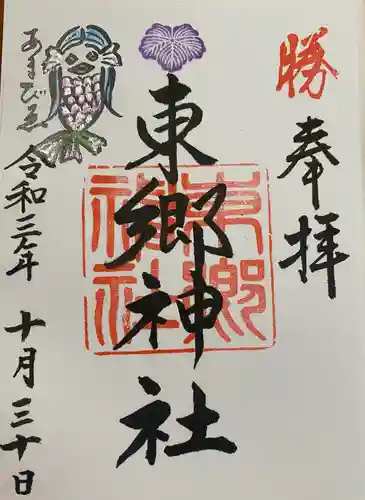 勝
奉拝
東郷神社
東郷神社
あまびゑ
令和三年
十月三十日